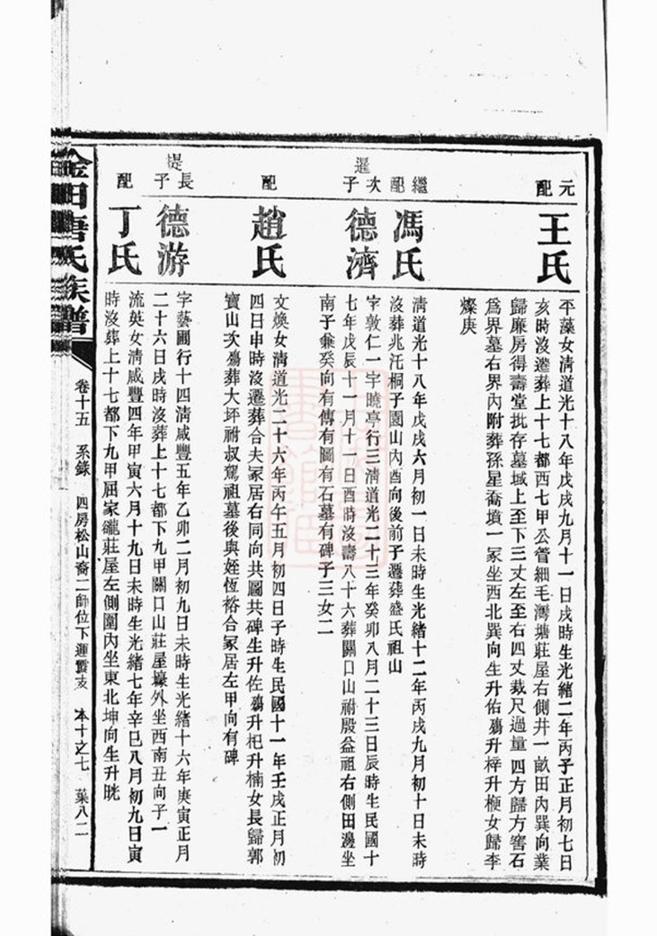 元配
王氏
平藻女清道光十八年戊戌九月十一日戌時生光緒二年丙子正月初七日
亥時沒遷葬上十七都西七甲公管細毛灣塘莊屋右側井一畝田內巽向業
歸廉房得壽堂批存墓域上至下三丈左至右四丈裁尺過量四方歸方窖石
為界墓右界內附葬孫星喬墳一冢坐西北巽向生升佑殤升梓升楩女歸李
燦庚
繼配
馮氏
清道光十八年戊戌六月初一日未時生光緒十二年丙戌九月初十日未時
沒葬兆汑桐子園山內酉向後前子遷葬盛氏祖山
暹次子
德濟
字敦仁一字曉亭行三清道光二十三年癸卯八月二十三日辰時生民國十
七年戊辰十一月十一日酉時沒壽八十六葬關口山祔殷益祖右側田邊坐
南子兼癸向有傳有圖有石墓有碑子三女二
配
趙氏
文煥女清道光二十六年丙午五月初四日子時生民國十一年壬戌正月初
四日申時沒遷葬合夫冢居右同向共圖共碑生升佐殤升杞升楠女長歸郭
寶山次殤葬大坪祔叔駕祖墓後與姪恆裕合冢居左甲向有碑
禔長子
德游
字藝圃行十四清咸豐五年乙卯二月初九日未時生光緒十六年庚寅正月
二十六日戌時沒葬上十七都下九甲關口山莊屋壕外坐西南丑向子一
配
丁氏
流英女清咸豐四年甲寅六月十九日未時生光緒七年辛巳八月初九日寅
時沒葬上十七都下九甲屈家巃莊屋左側園內坐東北坤向生升晄
金田唐氏族譜
卷十五 系錄 四房松山裔二師位下運賢支 本十之七 葉八二